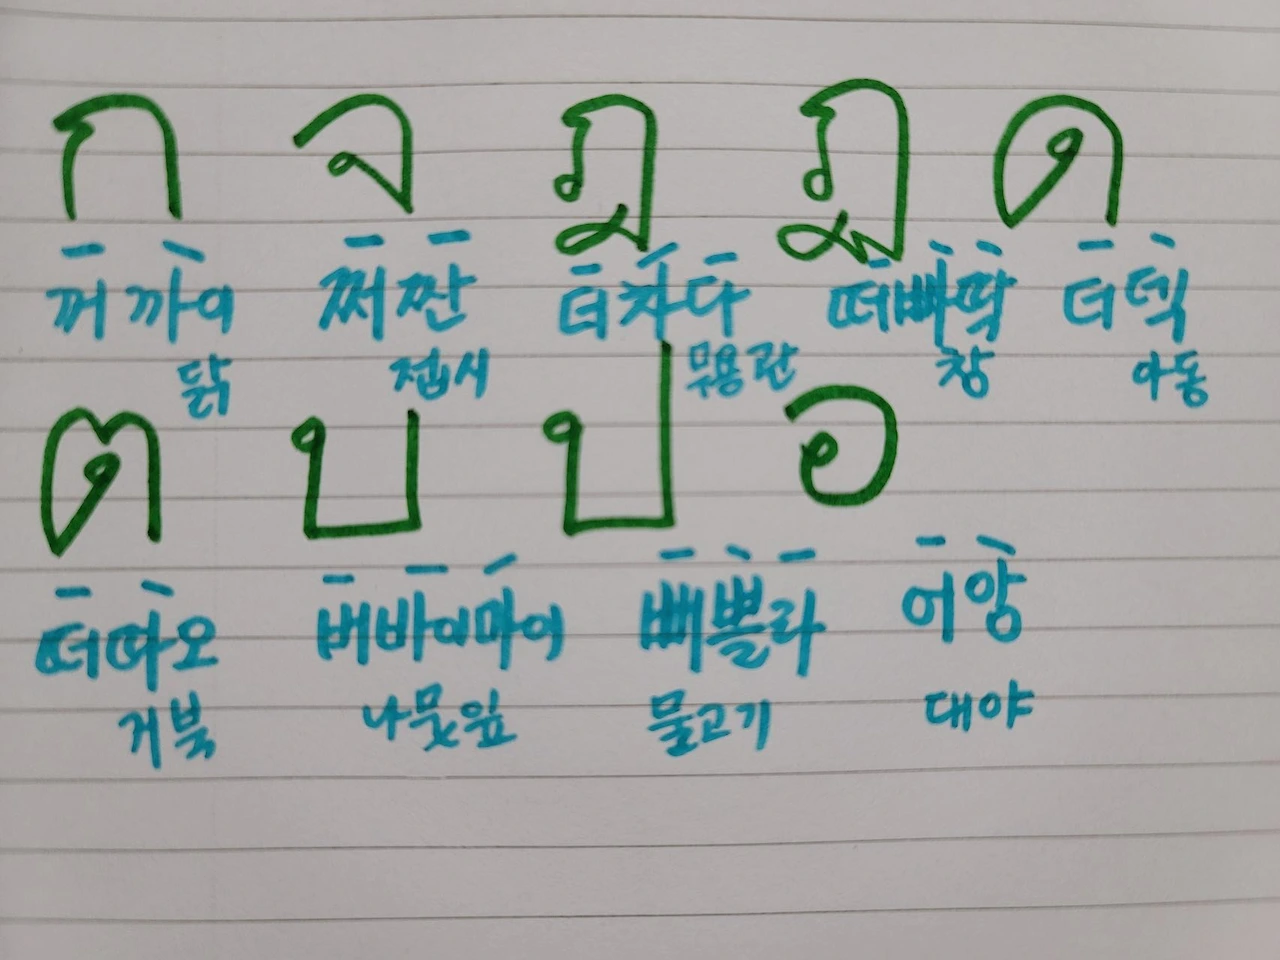 ก จ ฎ ฏ ด
꺼 까이 쩌 짠 더 차다 떠빠딱 더 덱
닭 접시 무용관 창 아동
ต บ ป อ
떠 따오 버 바이마이 뻐 쁠라 어 앙
거북 나뭇잎 물고기 대야